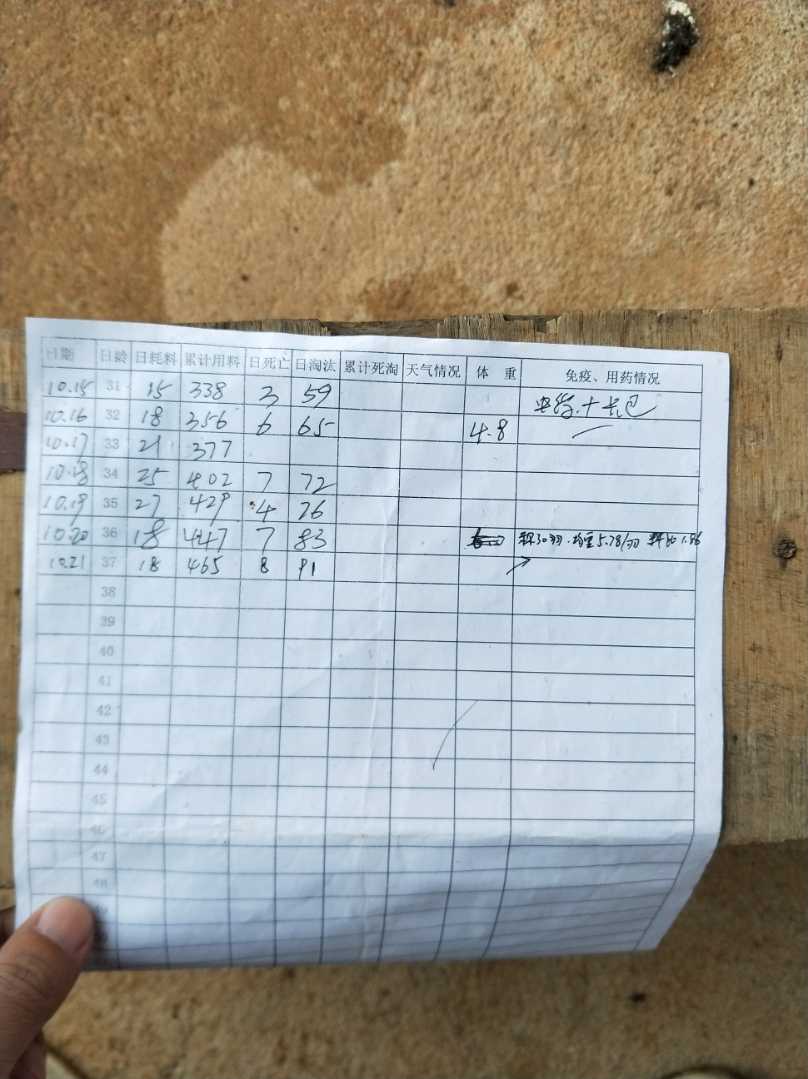 日期 日龄 日耗料 累计用料 日死亡 日淘汰 累计死淘 天气情况 体 重 免疫、用药情况
10.15 31 15 338 3 59
10.16 32 18 356 6 65 4.8
10.17 33 21 377
10.18 34 25 402 7 72
10.19 35 27 429 4 76
10.20 36 18 447 7 83 称30羽.均重5.78/羽 料比1.86
10.21 37 18 465 8 91
38
39
40
41
42
43
44
45
46
47
48